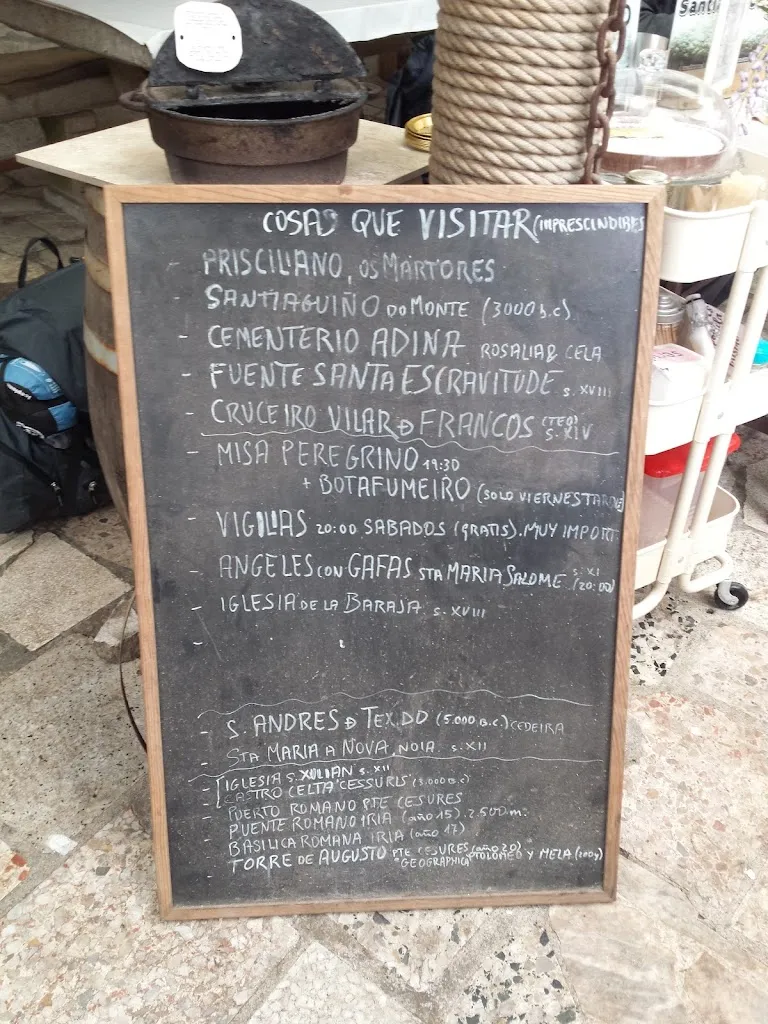 Santi
COSAS QUE VISITAR (IMPRESCINDIBLES
- PRISCILIANO, OS MARTORES
- SANTIAGUIÑO DO MONTE (3000 b.c).
- CEMENTERIO ADINA ROSALIA & CELA
- FUENTE SANTA ESCRAVITUDE S. XVIII
- CRUCEIRO VILAR D FRANCOS (TEO) S. XIV
- MISA PEREGRINO 19:30
+ BOTAFUMEIRO (SOLO VIERNES TARDE)
- VIGILIAS 20:00 SABADOS (GRATIS). MUY IMPORT.
- ANGELES CON GAFAS STA MARIA SALOME S. XI (20:00)
- IGLESIA DE LA BARAJA S. XVIII
-
- S. ANDRES D TEXIDO (5.000 B.C.) CEDEIRA
- STA MARIA A NOVA, NOIA S. XII
- IGLESIA S. XULIAN S. XII
CASTRO CELTA "CESSURIS" (3.000 B.C)
- PUERTO ROMANO PTE CESURES
- PUENTE ROMANO IRIA (año 15). 2.500 m.
- BASILICA ROMANA IRIA (año 17)
- TORRE DE AUGUSTO PTE CESURES (año 20)
"GEOGRAPHICA" PTOLOMEO Y MELA